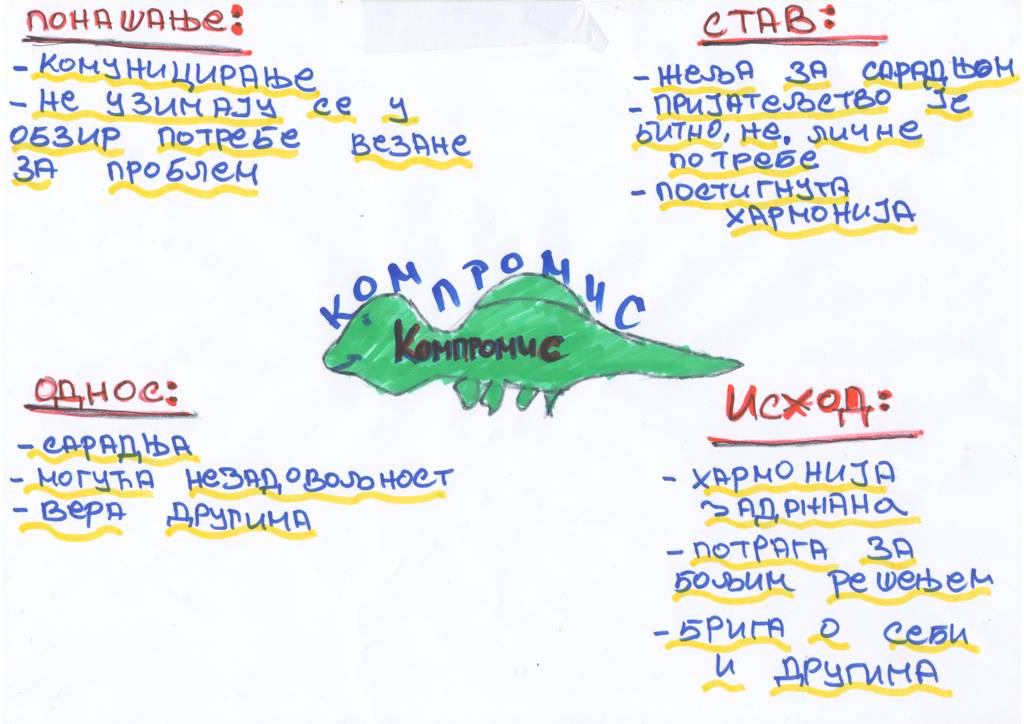 ПОНАШАЊЕ:
- КОМУНИЦИРАЊЕ
- НЕ УЗИМАЈУ СЕ У
ОБЗИР ПОТРЕБЕ ВЕЗАНЕ
ЗА ПРОБЛЕМ
СТАВ:
- ЖЕЉА ЗА САРАДЊОМ
- ПРИЈАТЕЉСТВО ЈЕ
БИТНО, НЕ. ЛИЧНЕ
ПОТРЕБЕ
- ПОСТИГНУТА
ХАРМОНИЈА
КОМПРОМИС
Компромис
ОДНОС:
- САРАДЊА
- МОГУЋА НЕЗАДОВОЉНОСТ
- ВЕРА ДРУГИМА
ИСХОД:
- ХАРМОНИЈА
ЗАДРЖАНА
- ПОТРАГА ЗА
БОЉИМ РЕШЕЊЕМ
- БРИГА О СЕБИ
И ДРУГИМА